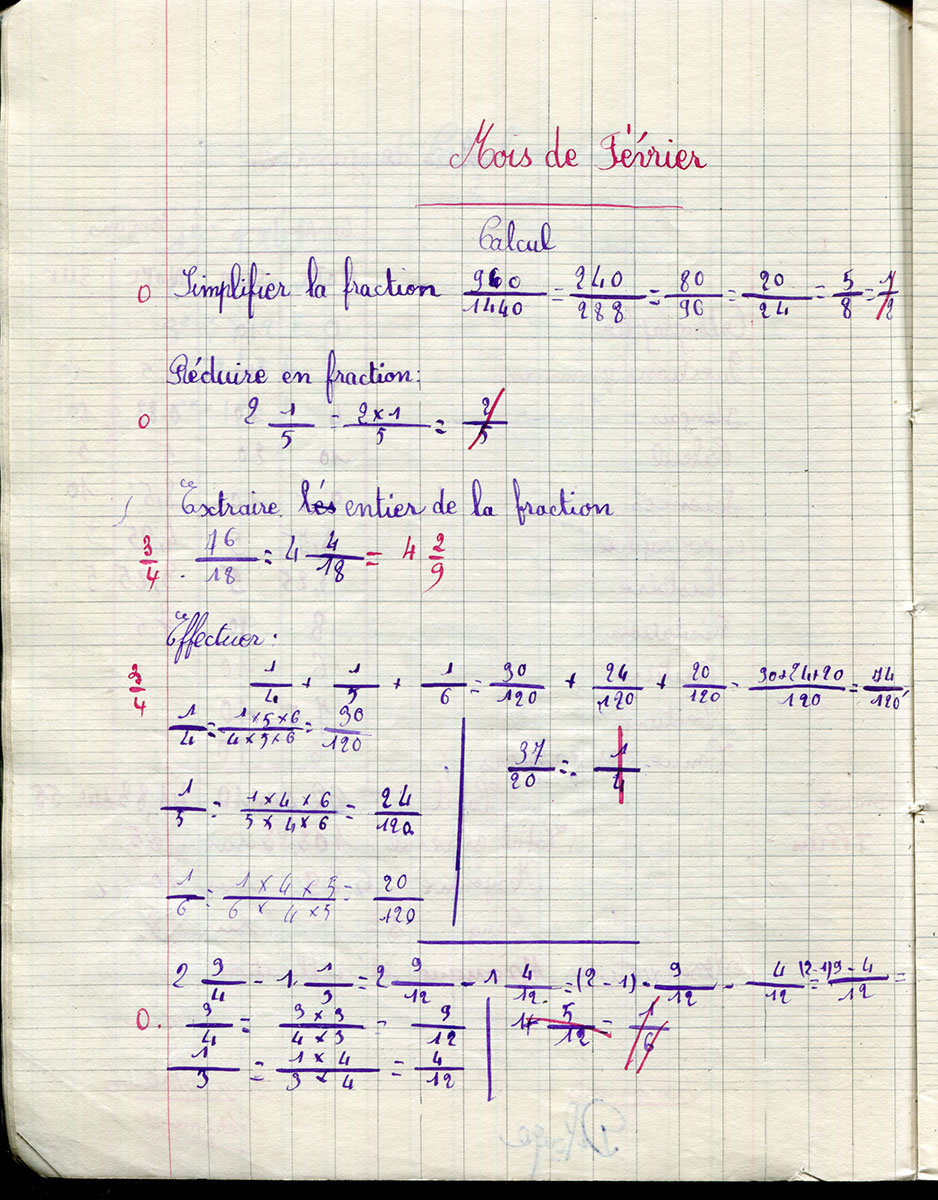 Mois de Février
Calcul
0 Simplifier la fraction 960/1440 = 240/288 = 80/90 = 20/24 = 5/8 = 1/2
Réduire en fraction:
0 2 1/5 = 2×1/5 = 2/5
Extraire les entier de la fraction
3/4 76/18 = 4 4/18 = 4 2/9
Effectuer:
3/4 1/4 + 1/5 + 1/6 = 30/120 + 24/120 + 20/120 = 30+24+20/120 = 74/120
1/4 = 1×5×6/4×5×6 = 30/120
37/20 = 1/4
1/5 = 1×4×6/5×4×6 = 24/120
1/6 = 1×4×5/6×4×5 = 20/120
2 3/4 - 1 1/3 = 2 9/12 - 1 4/12 = (2-1) - 9/12 - 4/12 = (2-1) 9-4/12 =
0. 3/4 = 3×3/4×3 = 9/12
1 5/12 = 1/6
1/3 = 1×4/3×4 = 4/12